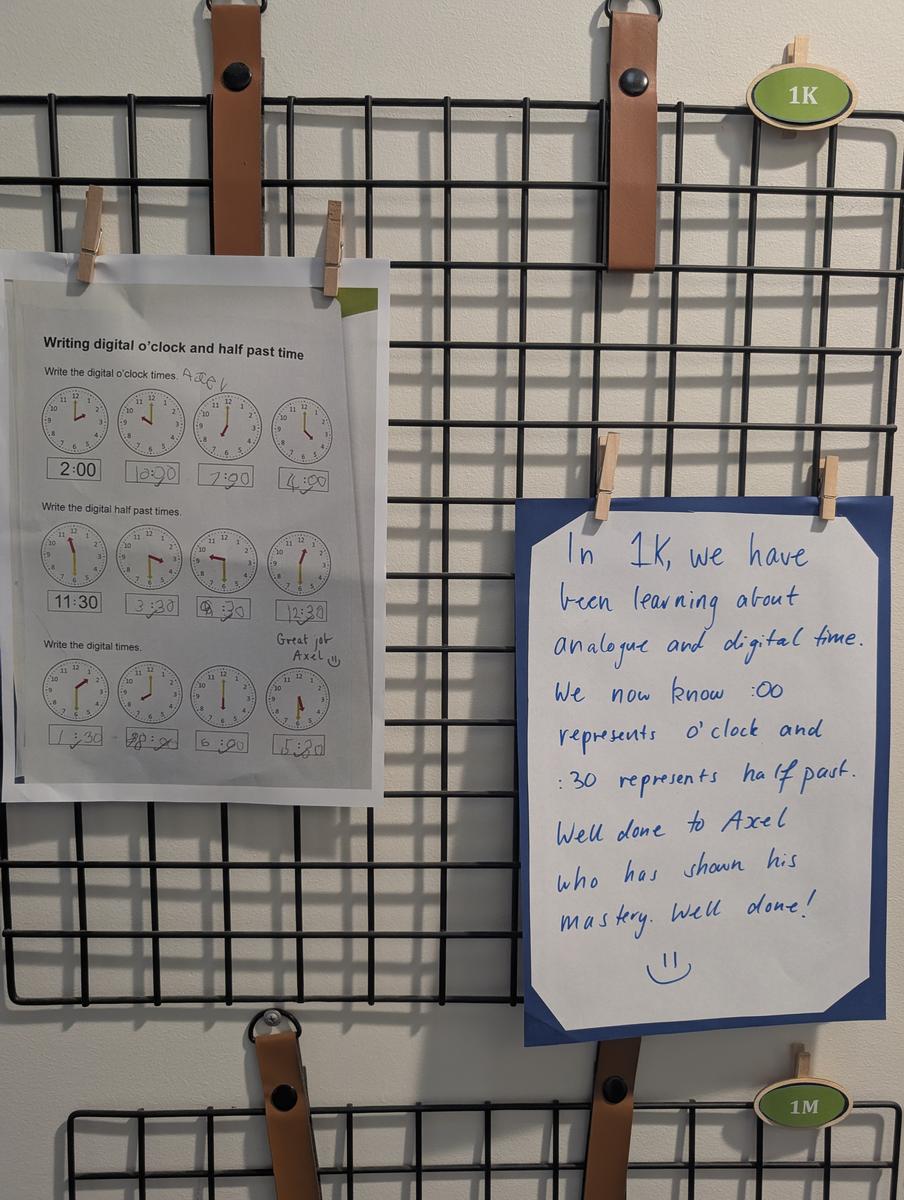 1K
Writing digital o'clock and half past time
Write the digital o'clock times. Axel
2:00 10:00 7:00 4:00
Write the digital half past times.
11:30 3:30 9:30 12:30
Great job
Axel
Write the digital times.
1:30 6:00 5:30
In 1K, we have
been learning about
analogue and digital time.
We now know :00
represents o'clock and
:30 represents half past.
Well done to Axel
who has shown his
mastery. Well done!
1M